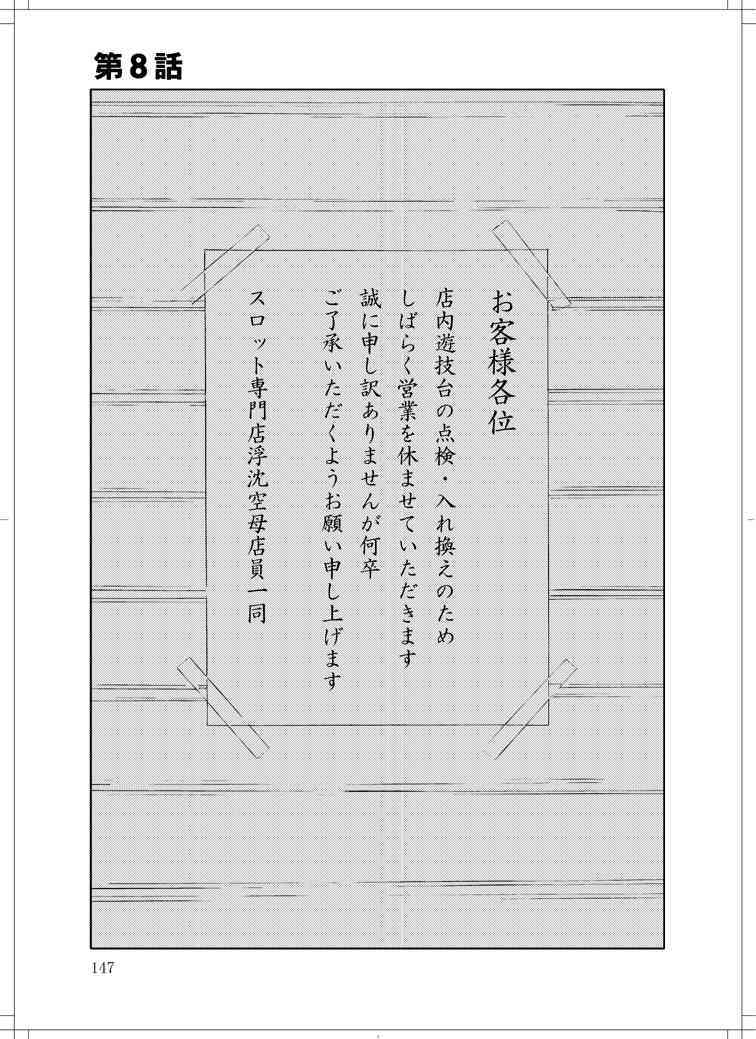 第8話
お客様各位
店内遊技台の点検・入れ換えのため
しばらく営業を休ませていただきます
誠に申し訳ありませんが何卒
ご了承いただくようお願い申し上げます
スロット専門店浮沈空母店員一同
147